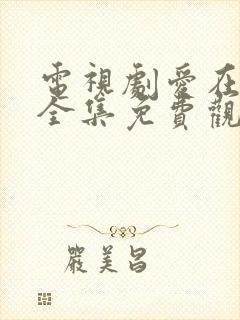 電視劇愛在
全集免費觀
嚴美昌